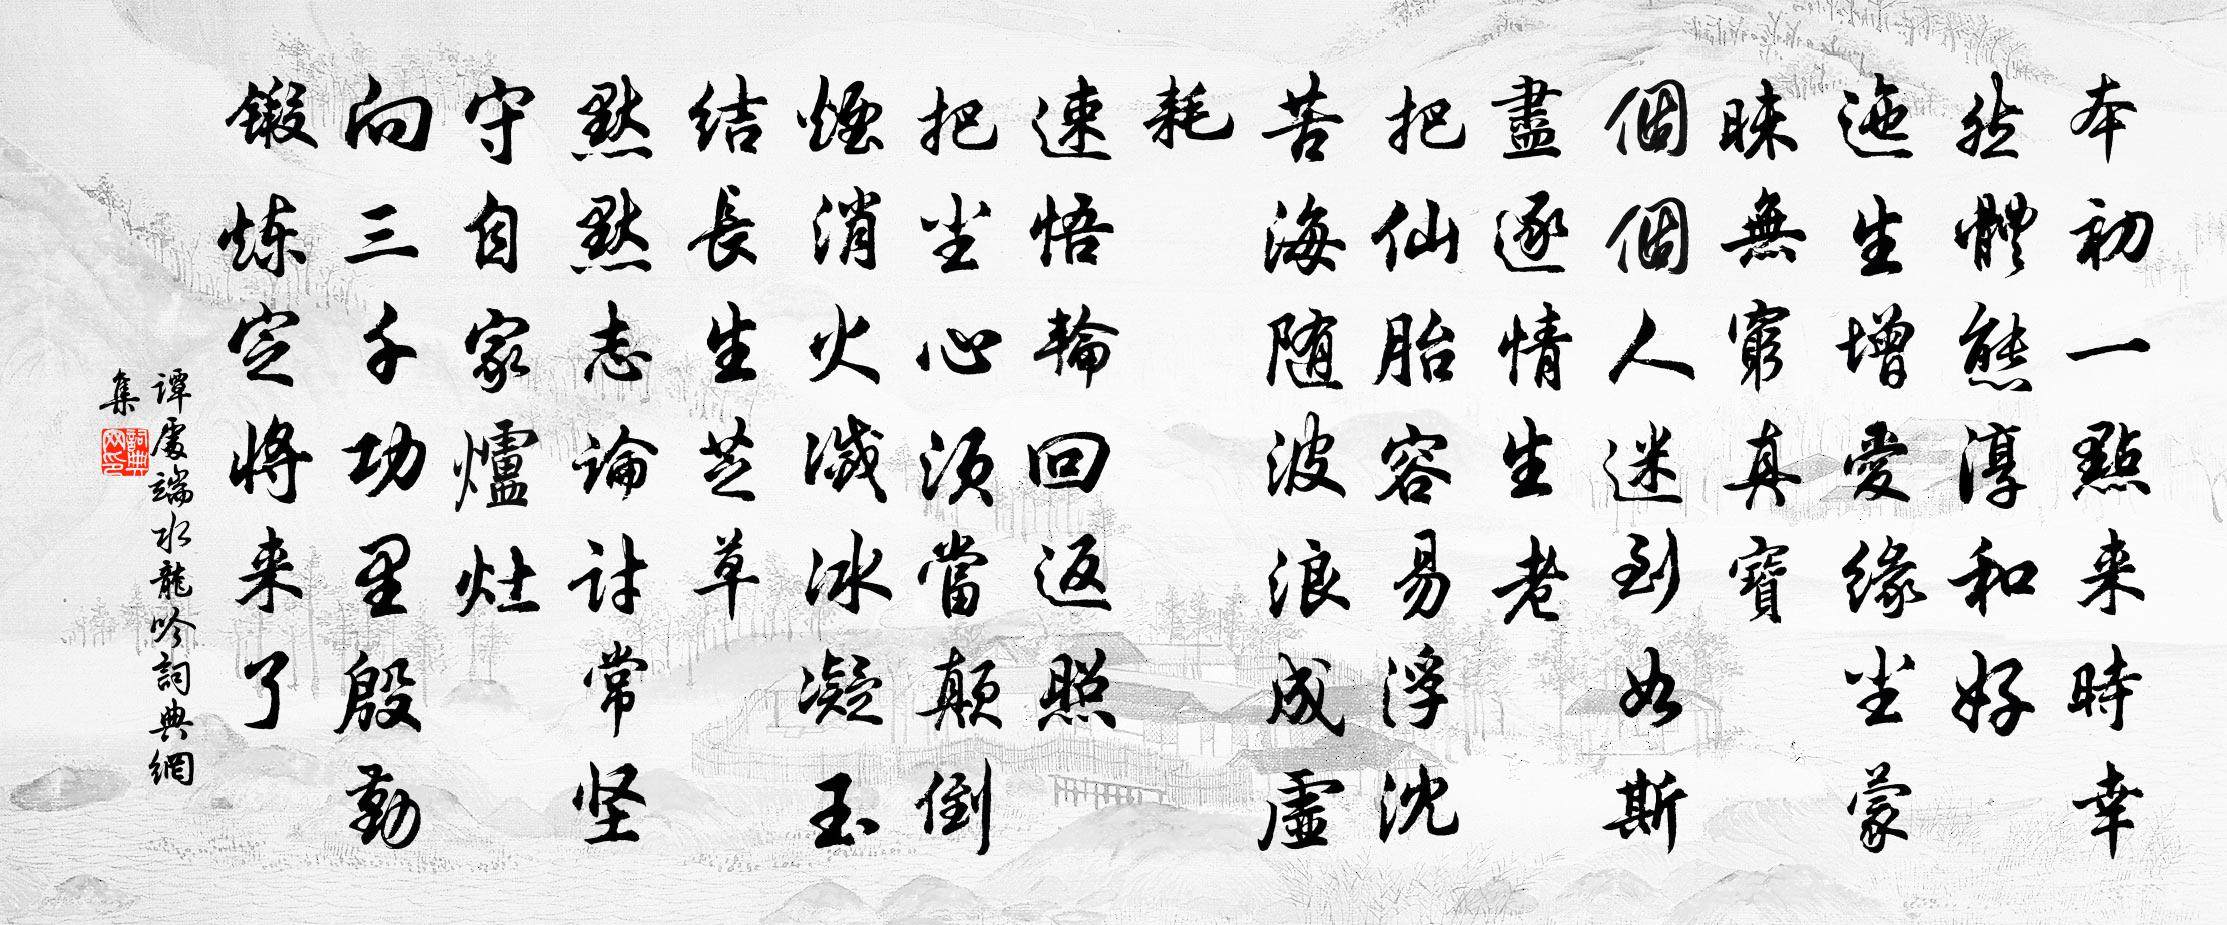 本初一點来時幸
然體態淳和好
迤生增愛缘尘蒙
昧無窮真寶
個個人迷到如斯
盡逐情生老
把仙胎容易浮沈
苦海随波浪成虛
耗
速悟輪回返照
把尘心须當颠倒
煙消火滅冰凝玉
结長生芝草
默默志論討常坚
守自家爐灶
向三千功里殷勤
鍛炼定将来了
谭處端水龍吟詞典網
集
詞典網印